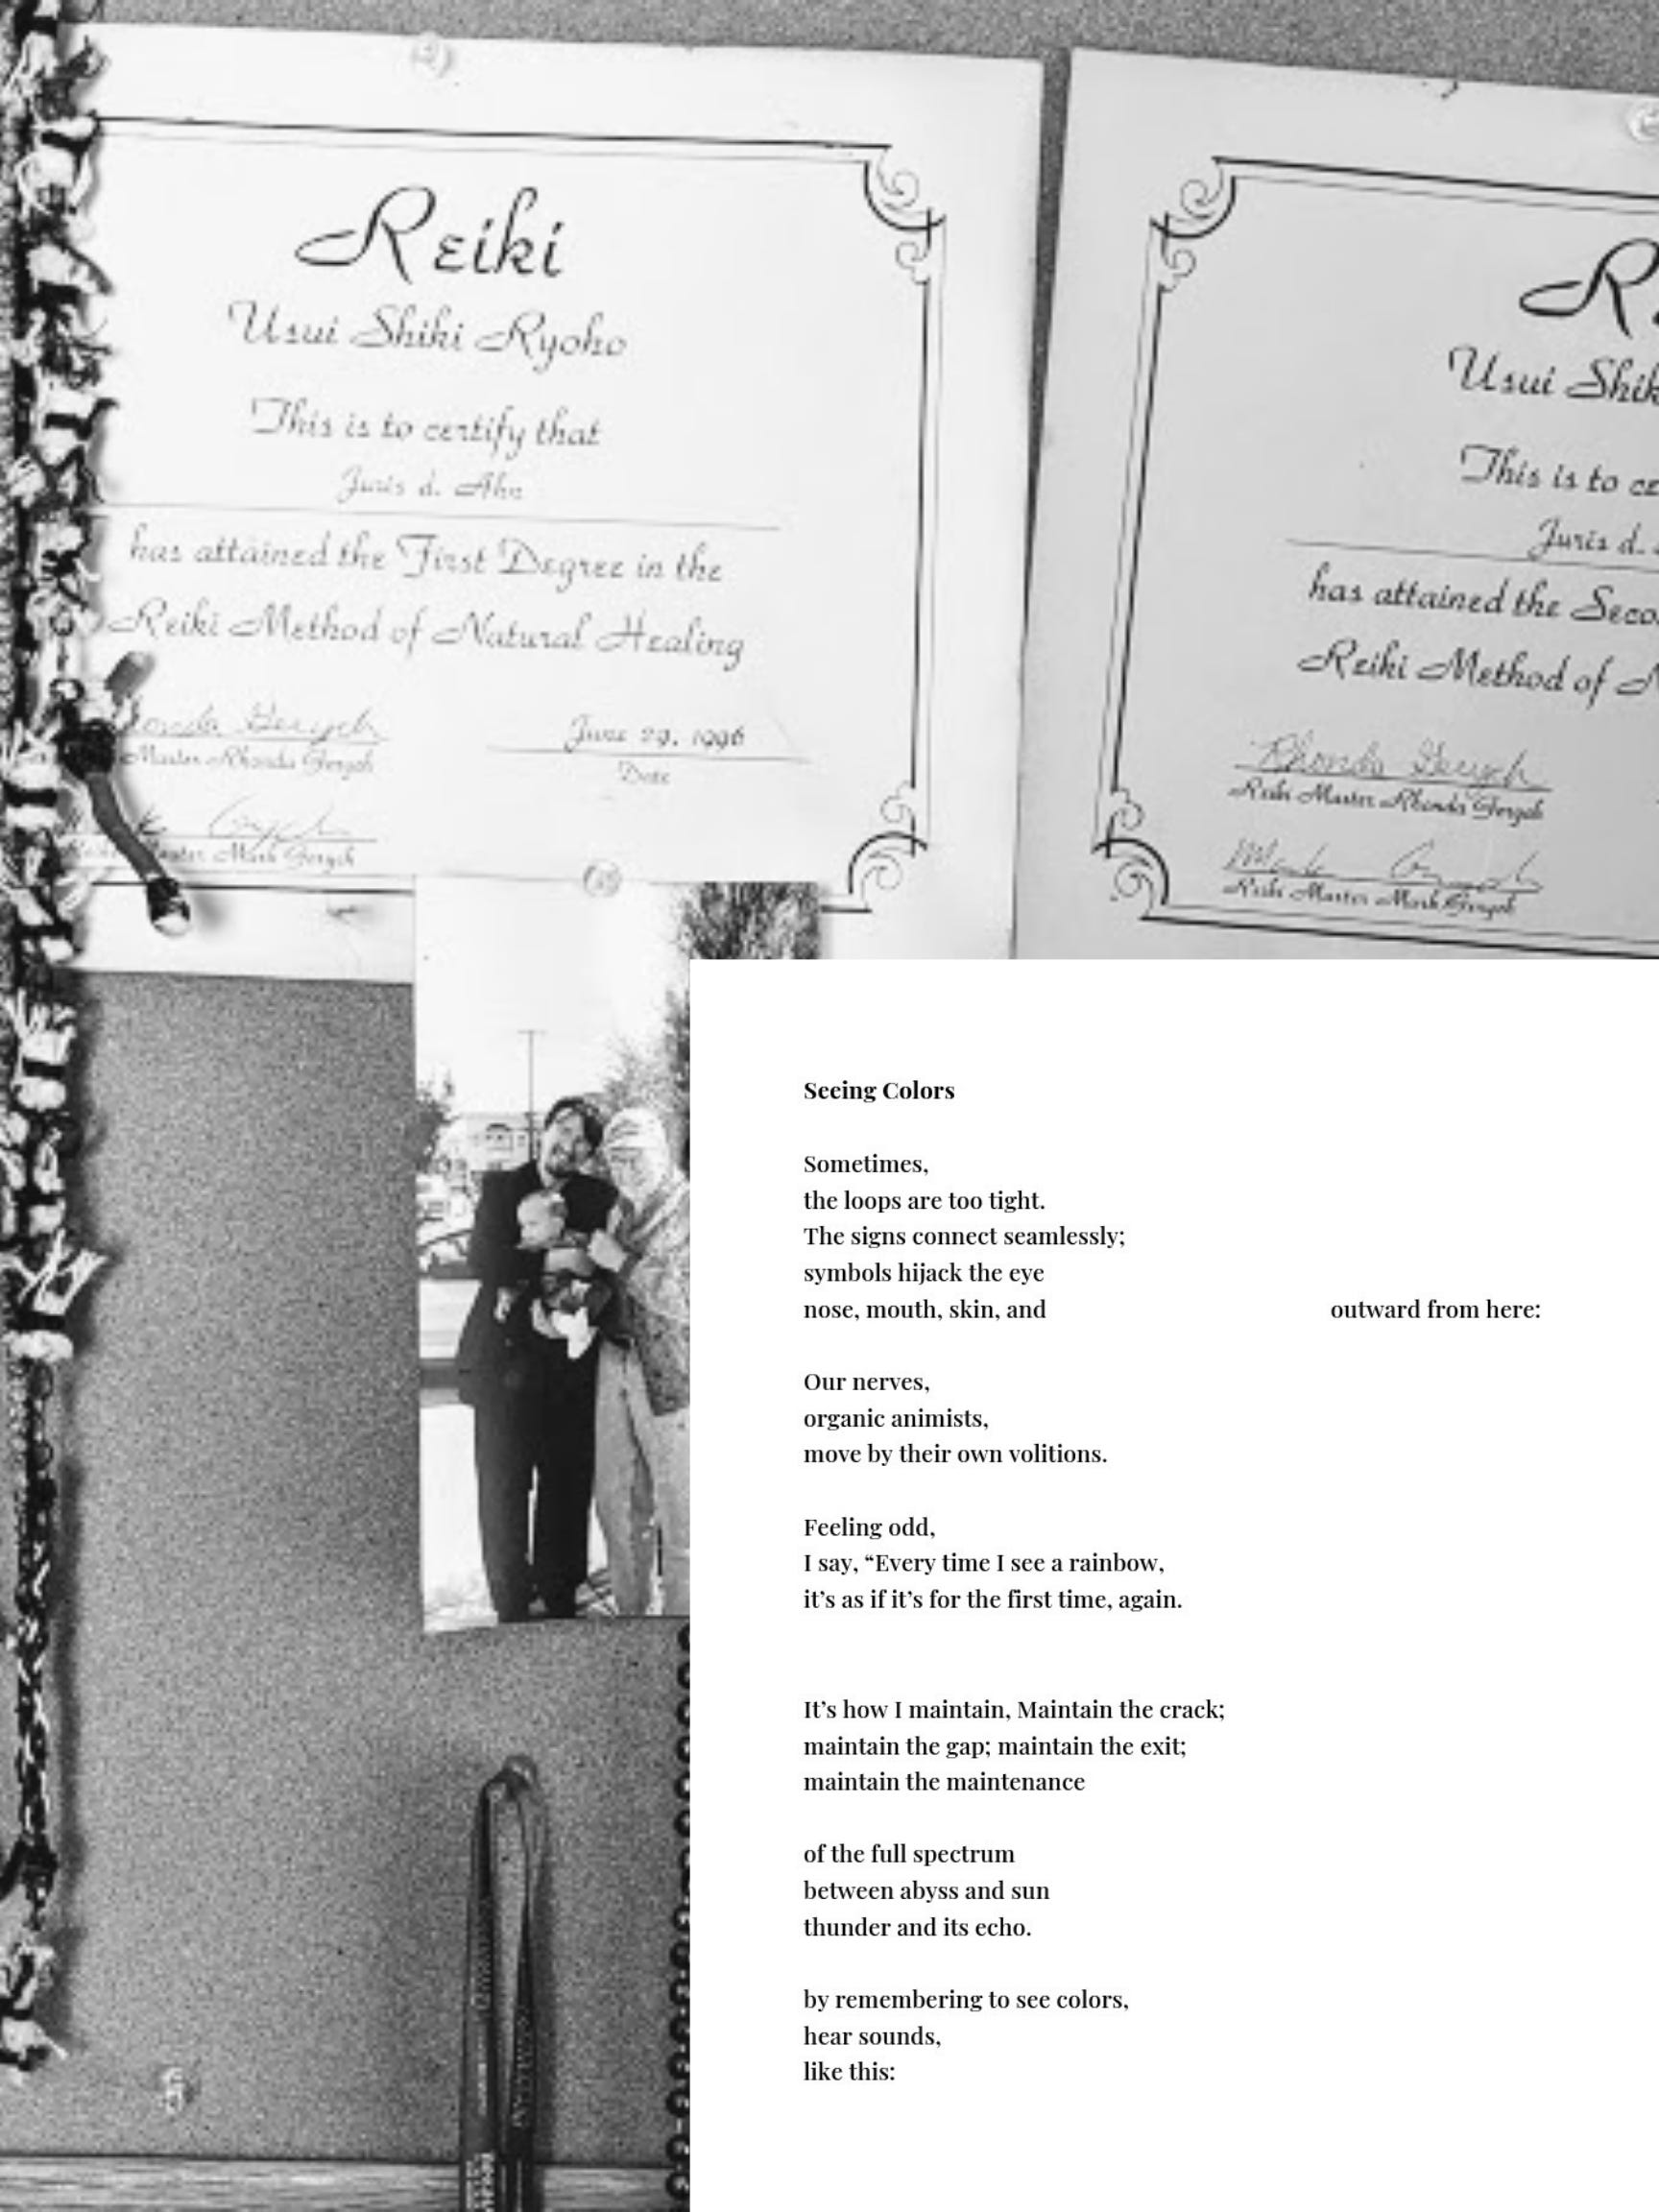 Reiki
Usui Shiki Ryoho
This is to certify that
Juris d. Ahn
has attained the First Degree in the
Reiki Method of Natural Healing
June 29, 1996
Master Rhonda Gerych
Date
Master Mark Gerych
Usui
This is to
Juris d.
has attained the
Reiki Method of
Rhonda Gerych
Reiki Master Rhonda Gerych
Mark Gerych
Reiki Master Mark Gerych
Seeing Colors
Sometimes,
the loops are too tight.
The signs connect seamlessly;
symbols hijack the eye
nose, mouth, skin, and outward from here:
Our nerves,
organic animists,
move by their own volitions.
Feeling odd,
I say, “Every time I see a rainbow,
it’s as if it’s for the first time, again.
It’s how I maintain, Maintain the crack;
maintain the gap; maintain the exit;
maintain the maintenance
of the full spectrum
between abyss and sun
thunder and its echo.
by remembering to see colors,
hear sounds,
like this: